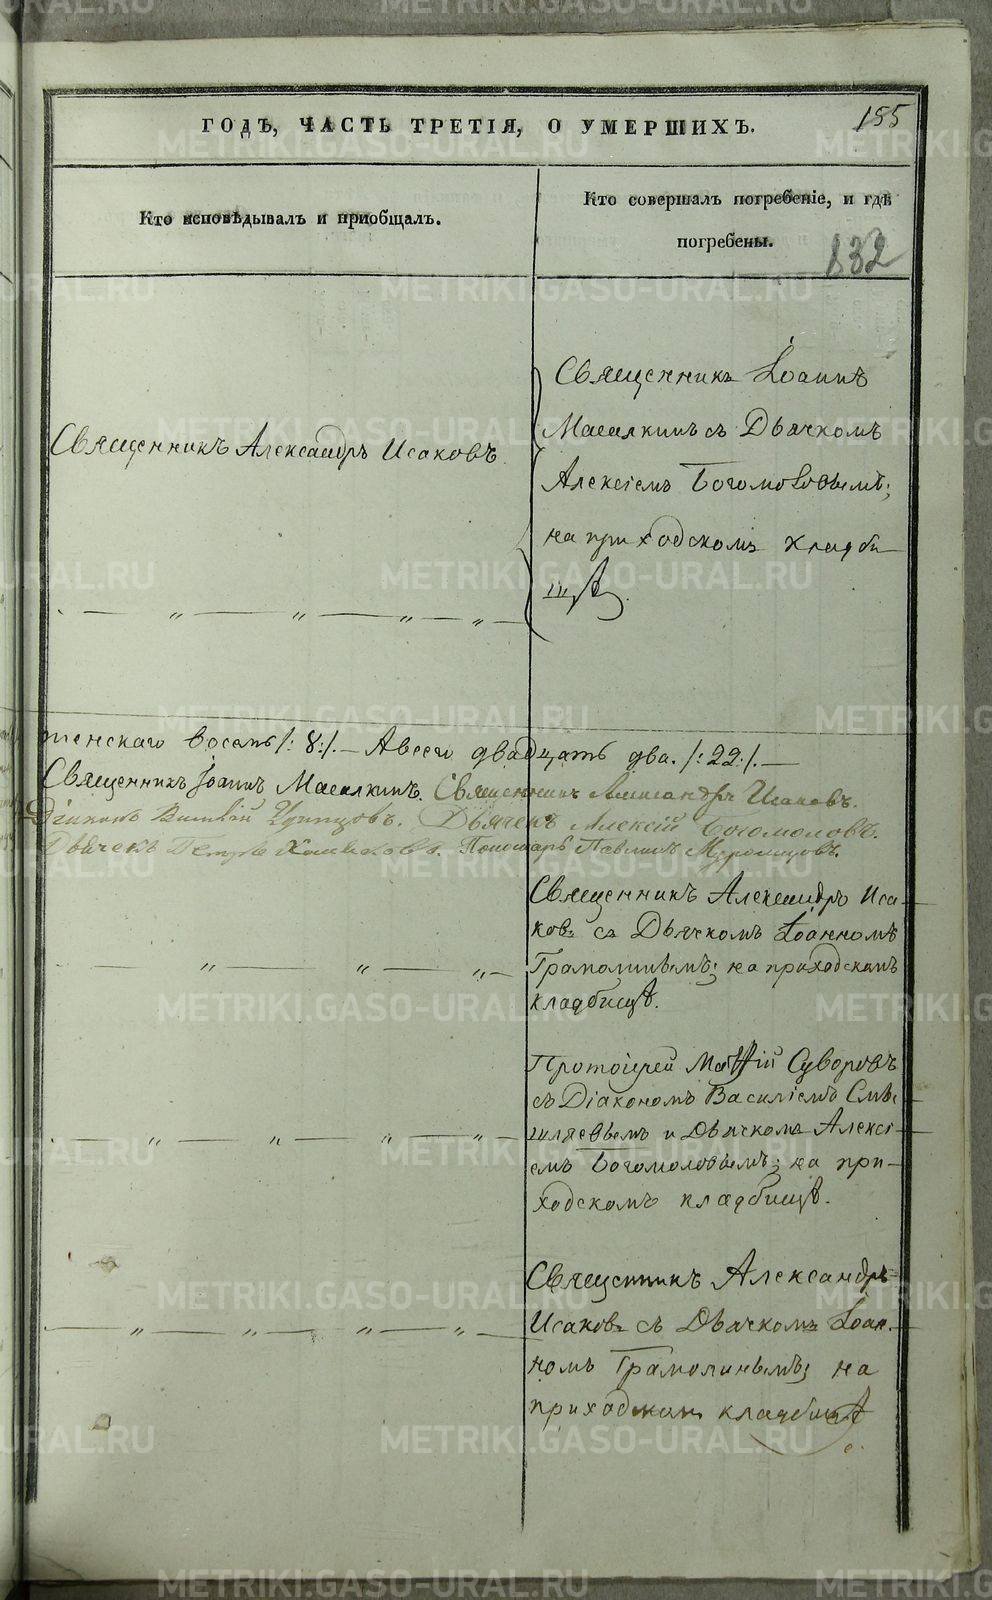 ГОДЪ, ЧАСТЬ ТРЕТІЯ, О УМЕРШИХЪ.
155
Кто исповѣдывалъ и пріобщалъ.
Кто совершалъ погребеніе, и гдѣ
погребены.
132
Священникъ Александръ Исаковъ.
Священникъ Іоаннъ
Масалкинъ съ Дьячкомъ
Алексіемъ Богомоловымъ;
на приходскомъ кладби
щѣ.
восемь /: 8 :/. — А всего двадцать два. /: 22 :/. —
Священникъ Іоаннъ Масалкинъ. Священникъ Александръ Исаковъ.
Діаконъ Дьячекъ Алексій Богомоловъ.
Дьячекъ Петръ Пономарь Павлинъ
Священникъ Александръ Иса-
ковъ съ Дьячкомъ Іоанномъ
Грамолинымъ; на приходскомъ
кладбищѣ.
Протоіерей Матѳій Суворовъ
съ Діакономъ Василіемъ
и Дьячкомъ Алексі-
емъ Богомоловымъ; на при-
ходскомъ кладбищѣ.
Священникъ Александръ
Исаковъ съ Дьячкомъ Іоан-
номъ Грамолинымъ; на
приходскомъ кладбищѣ.
METRIKI.GASO-URAL.RU